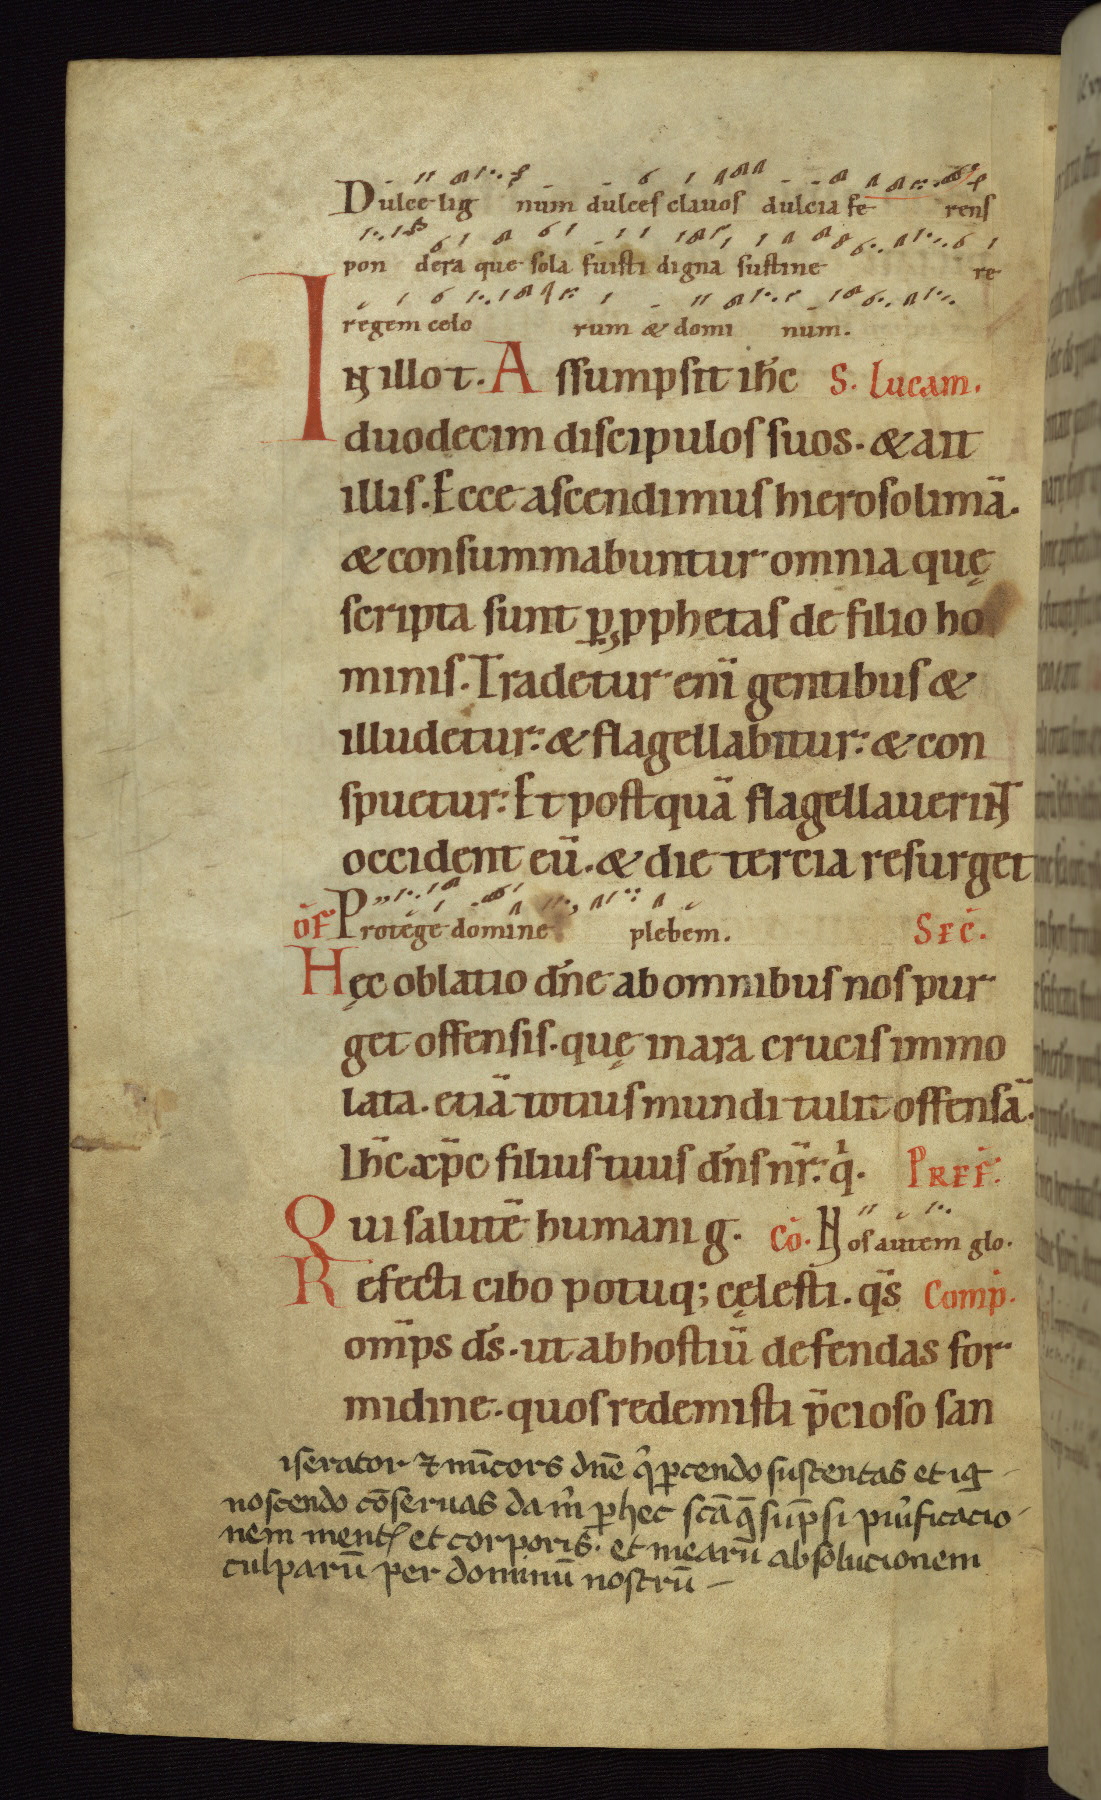 Dulce lig num dulces clavos dulcia fe rens
pon dera que sola fuisti digna sustine re
regem celo rum & domi num.
IN illo t. Assumpsit ih̄c S. Lucam.
duodecim discipulos suos. & ait
illis. Ecce ascendimus hierosolimā.
& consummabuntur omnia quę
scripta sunt p̱ p̱phetas de filio ho
minis. Tradetur eni̅ gentibus &
illudetur: & flagellabitur: & con
spuetur: Et postquā flagellauerint
occident eū. & die tercia resurget
of̄ Protege domine plebem. SEC̄.
Hęc oblatio dn̄e ab omnibus nos pur
get offensis. quę in ara crucis immo
lata. etiā totius mundi tulit offensā.
Ih̄c xp̄c filius tuus dn̄s nr̄: q̇. PREF̄.
Qui salutē humani g. Cō. Nos autem glo.
Refecti cibo potuq; cęlesti. qs̄ Comp̄.
om̄ps ds̄. ut ab hostiū defendas for
midine. quos redemisti p̄cioso san
iserator ⁊ mīcors dnē q̇ p̱cendo sustentas et ig-
noscendo cōseruas da m̄ p̱ hec scā q̄ sūpsi purificacio-
nem mentꝭ et corporis. et mearū absolucionem
culparū per dominū nostrū -